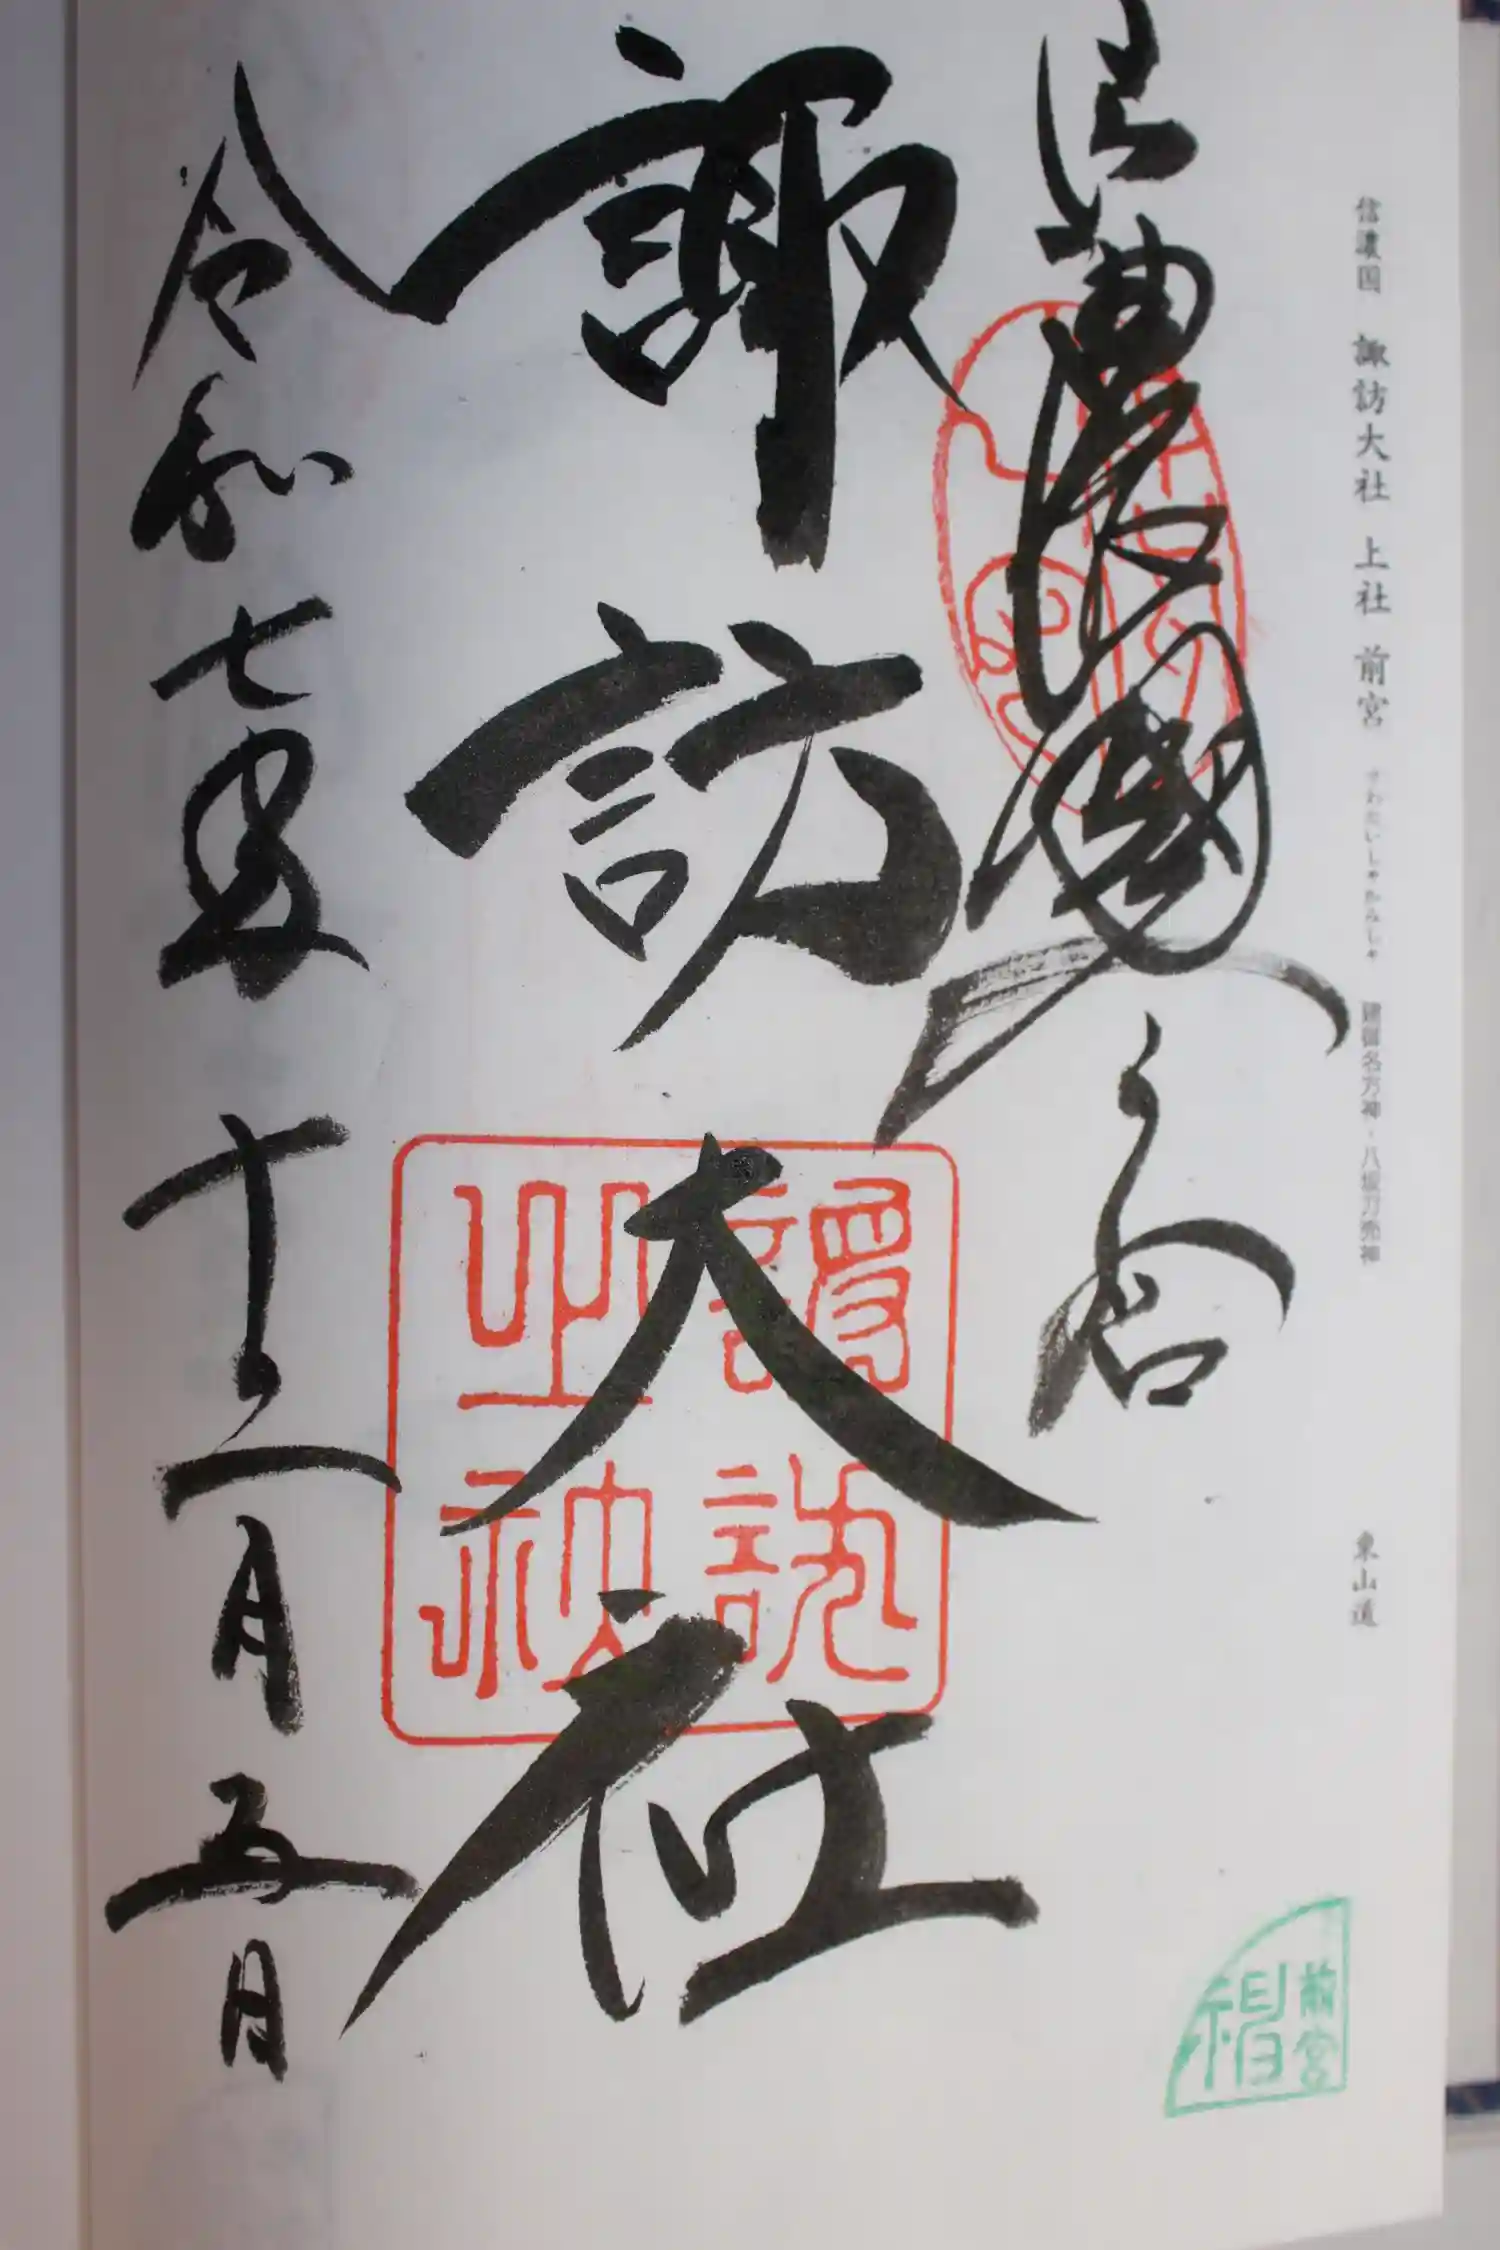 信濃国 諏訪大社 上社 前宮 すわたいしゃかみしゃ 建御名方神・八坂刀売神 東山道
信濃國一之宮
諏訪大社
令和七年十二月五日
前宮